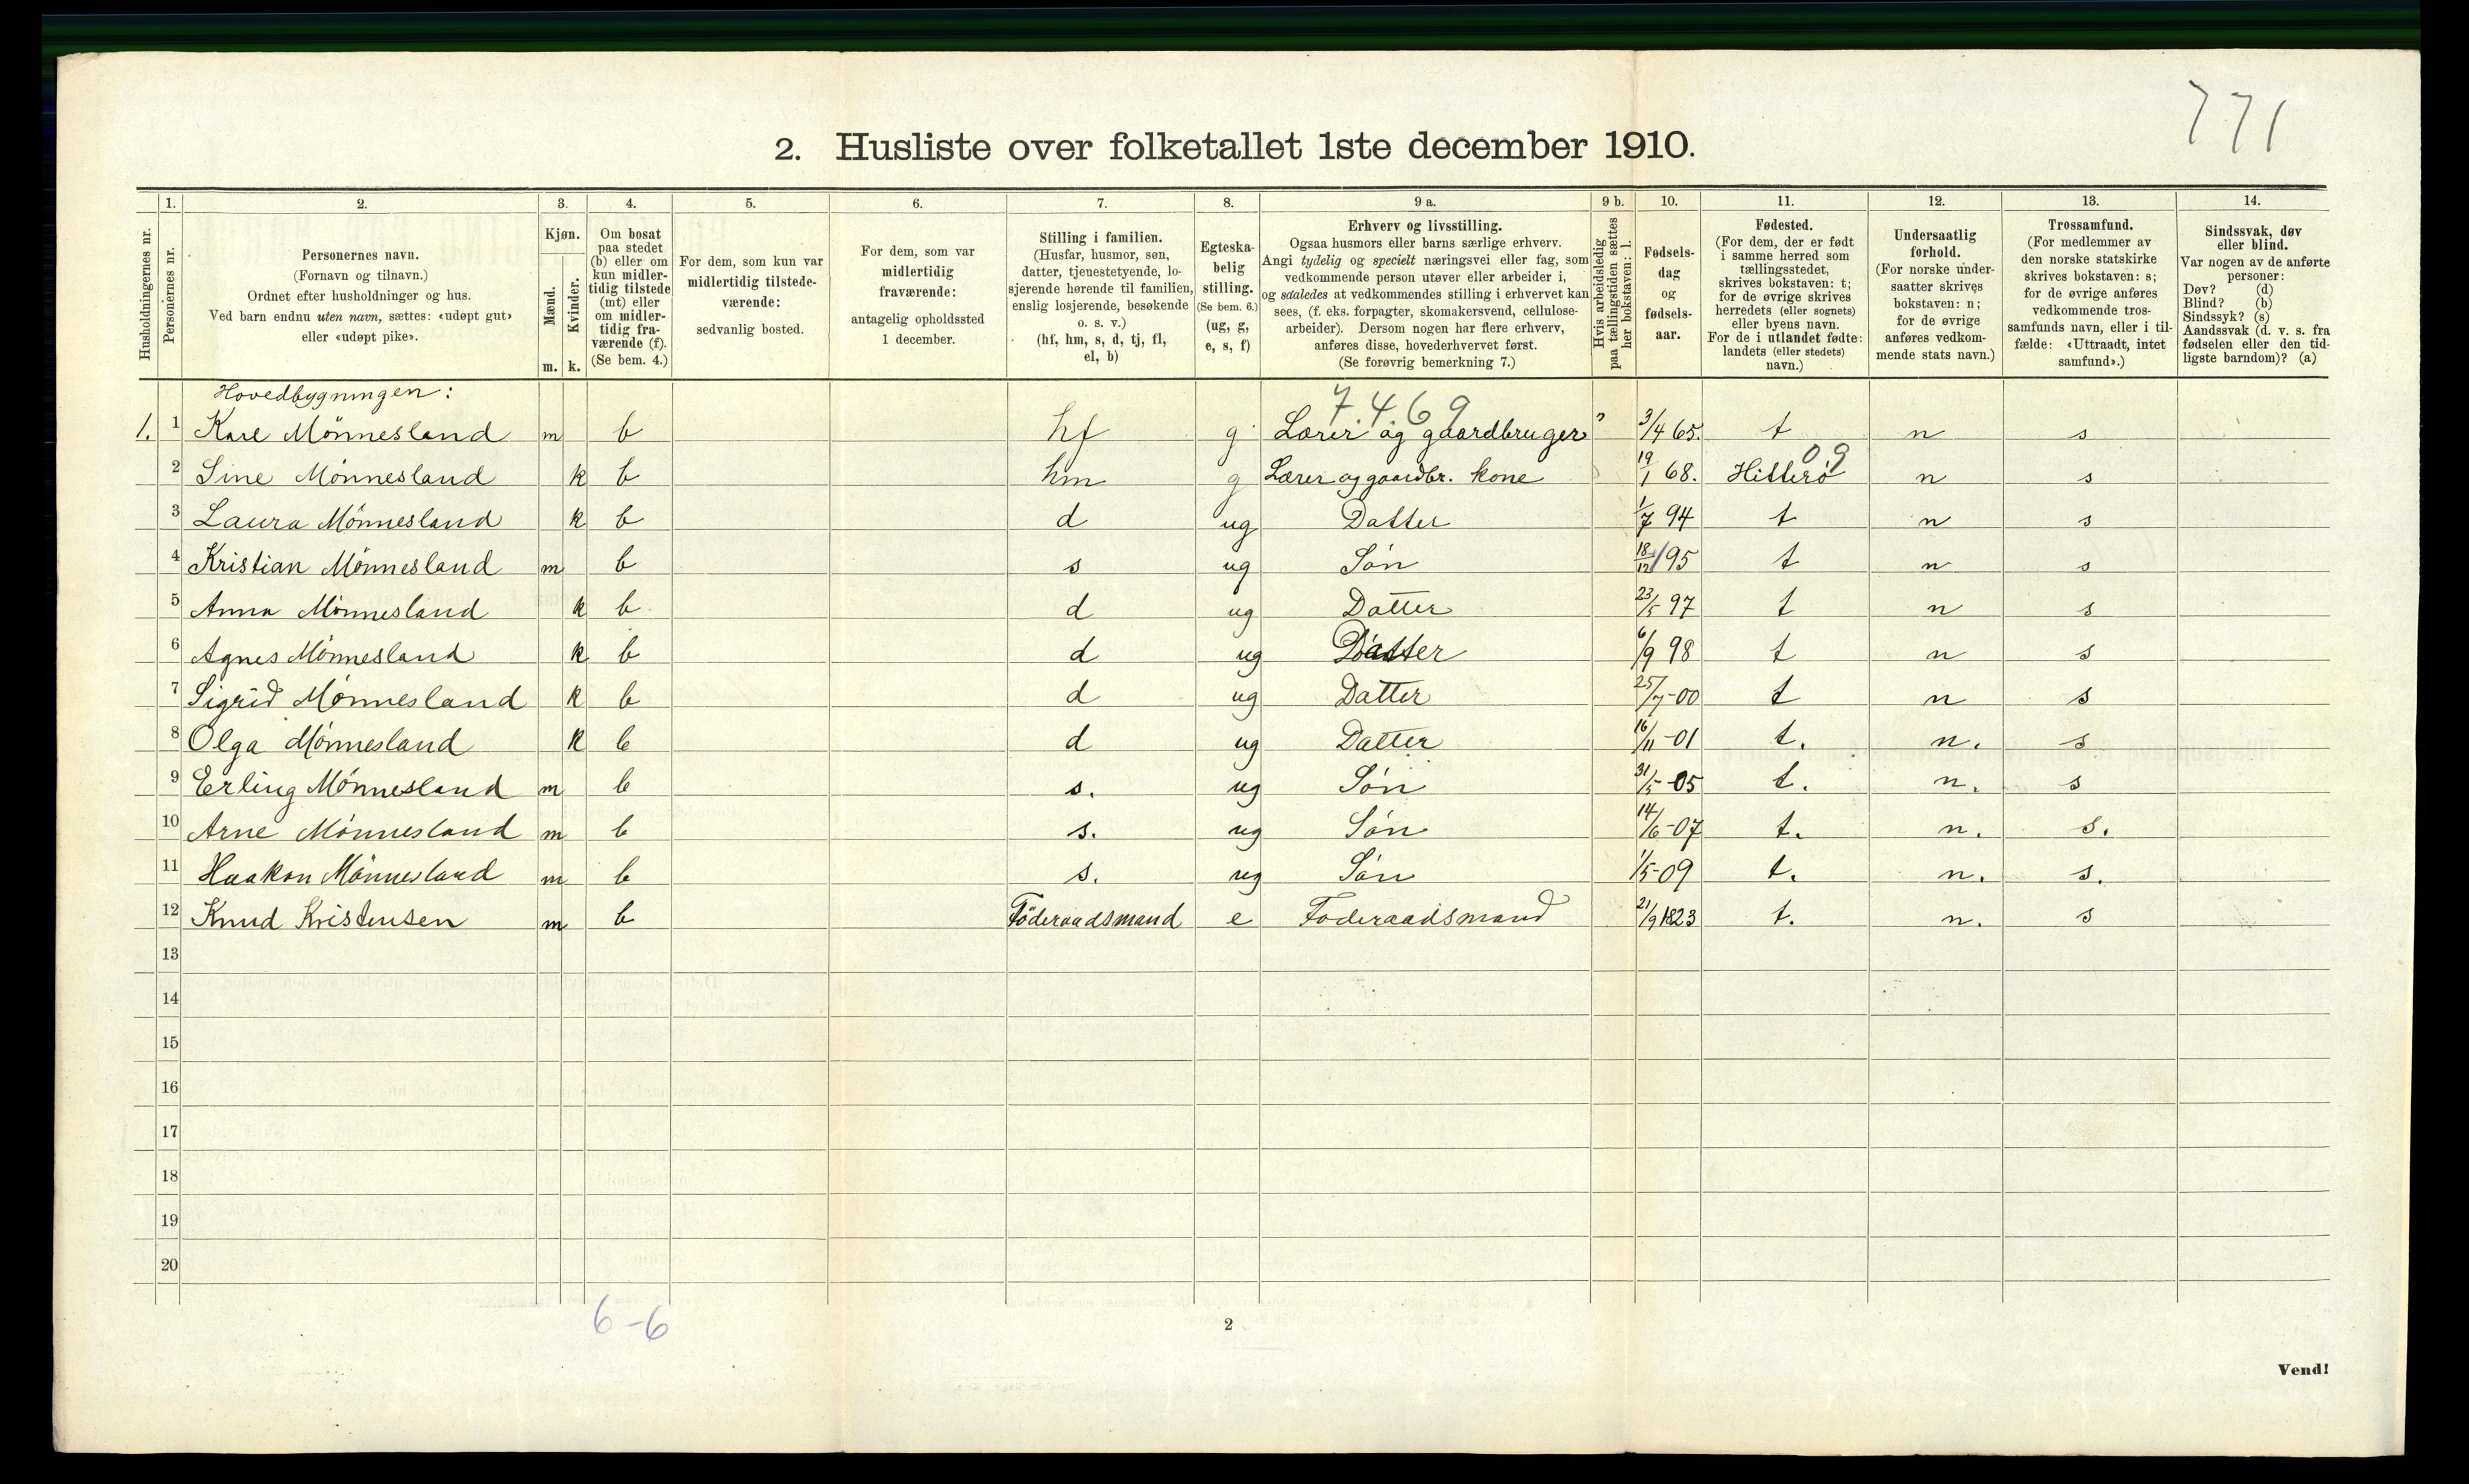 771
2. Husliste over folketallet 1ste december 1910.
Husholdningernes nr.
1. Personernes nr.
2. Personernes navn.
(Fornavn og tilnavn.)
Ordnet efter husholdninger og hus.
Ved barn endnu uten navn, sættes: «udøpt gut»
eller «udøpt pike».
3. Kjøn.
Mænd. m.
Kvinder. k.
4. Om bosat
paa stedet
(b) eller om
kun midler-
tidig tilstede
(mt) eller
om midler-
tidig fra-
værende (f).
(Se bem. 4.)
5. For dem, som kun var
midlertidig tilstede-
værende:
sedvanlig bosted.
6. For dem, som var
midlertidig
fraværende:
antagelig opholdssted
1 december.
7. Stilling i familien.
(Husfar, husmor, søn,
datter, tjenestetyende, lo-
sjerende hørende til familien,
enslig losjerende, besøkende
o. s. v.)
(hf, hm, s, d, tj, fl,
el, b)
8. Egteska-
belig
stilling.
(Se bem. 6.)
(ug, g,
e, s, f)
9 a. Erhverv og livsstilling.
Ogsaa husmors eller barns særlige erhverv.
Angi tydelig og specielt næringsvei eller fag, som
vedkommende person utøver eller arbeider i,
og saaledes at vedkommendes stilling i erhvervet kan
sees, (f. eks. forpagter, skomakersvend, cellulose-
arbeider). Dersom nogen har flere erhverv,
anføres disse, hovederhvervet først.
(Se forøvrig bemerkning 7.)
9 b. Hvis arbeidsledig
paa tællingstiden sættes
her bokstaven: l.
10. Fødsels-
dag
og
fødsels-
aar.
11. Fødested.
(For dem, der er født
i samme herred som
tællingsstedet,
skrives bokstaven: t;
for de øvrige skrives
herredets (eller sognets)
eller byens navn.
For de i utlandet fødte:
landets (eller stedets)
navn.)
12. Undersaatlig
forhold.
(For norske under-
saatter skrives
bokstaven: n;
for de øvrige
anføres vedkom-
mende stats navn.)
13. Trossamfund.
(For medlemmer av
den norske statskirke
skrives bokstaven: s;
for de øvrige anføres
vedkommende tros-
samfunds navn, eller i til-
fælde: «Uttraadt, intet
samfund».)
14. Sindssvak, døv
eller blind.
Var nogen av de anførte
personer:
Døv? (d)
Blind? (b)
Sindssyk? (s)
Aandssvak (d. v. s. fra
fødselen eller den tid-
ligste barndom)? (a)
Hovedbygningen:
7.469
1. 1 Karl Mönnesland m b hf g Lærer og gaardbruger 3/4 65. t n s
09
2 Sine Mönnesland k b hm g Lærer og gaardbr. kone 19/1 68. Hitterö n s
3 Laura Mönnesland k b d ug Datter 1/7 94 t n s
4 Kristian Mönnesland m b s ug Sön 18/12 95 t n s
5 Anna Mönnesland k b d ug Datter 23/5 97 t n s
6 Agnes Mönnesland k b d ug Datter 6/9 98 t n s
7 Sigrid Mönnesland k b d ug Datter 25/7-00 t n s
8 Olga Mönnesland k b d ug Datter 16/11-01 t. n. s
9 Erling Mönnesland m b s. ug Sön 31/5-05 t. n. s
10 Arne Mönnesland m b s. ug Sön 14/6-07 t. n. s.
11 Haakon Mönnesland m b s. ug Sön 1/5-09 t. n. s.
12 Knud Kristensen m b Föderaadsmand e Föderaadsmand 21/9 1823 t. n. s
13
14
15
16
17
18
19
20
6-6
2
Vend!